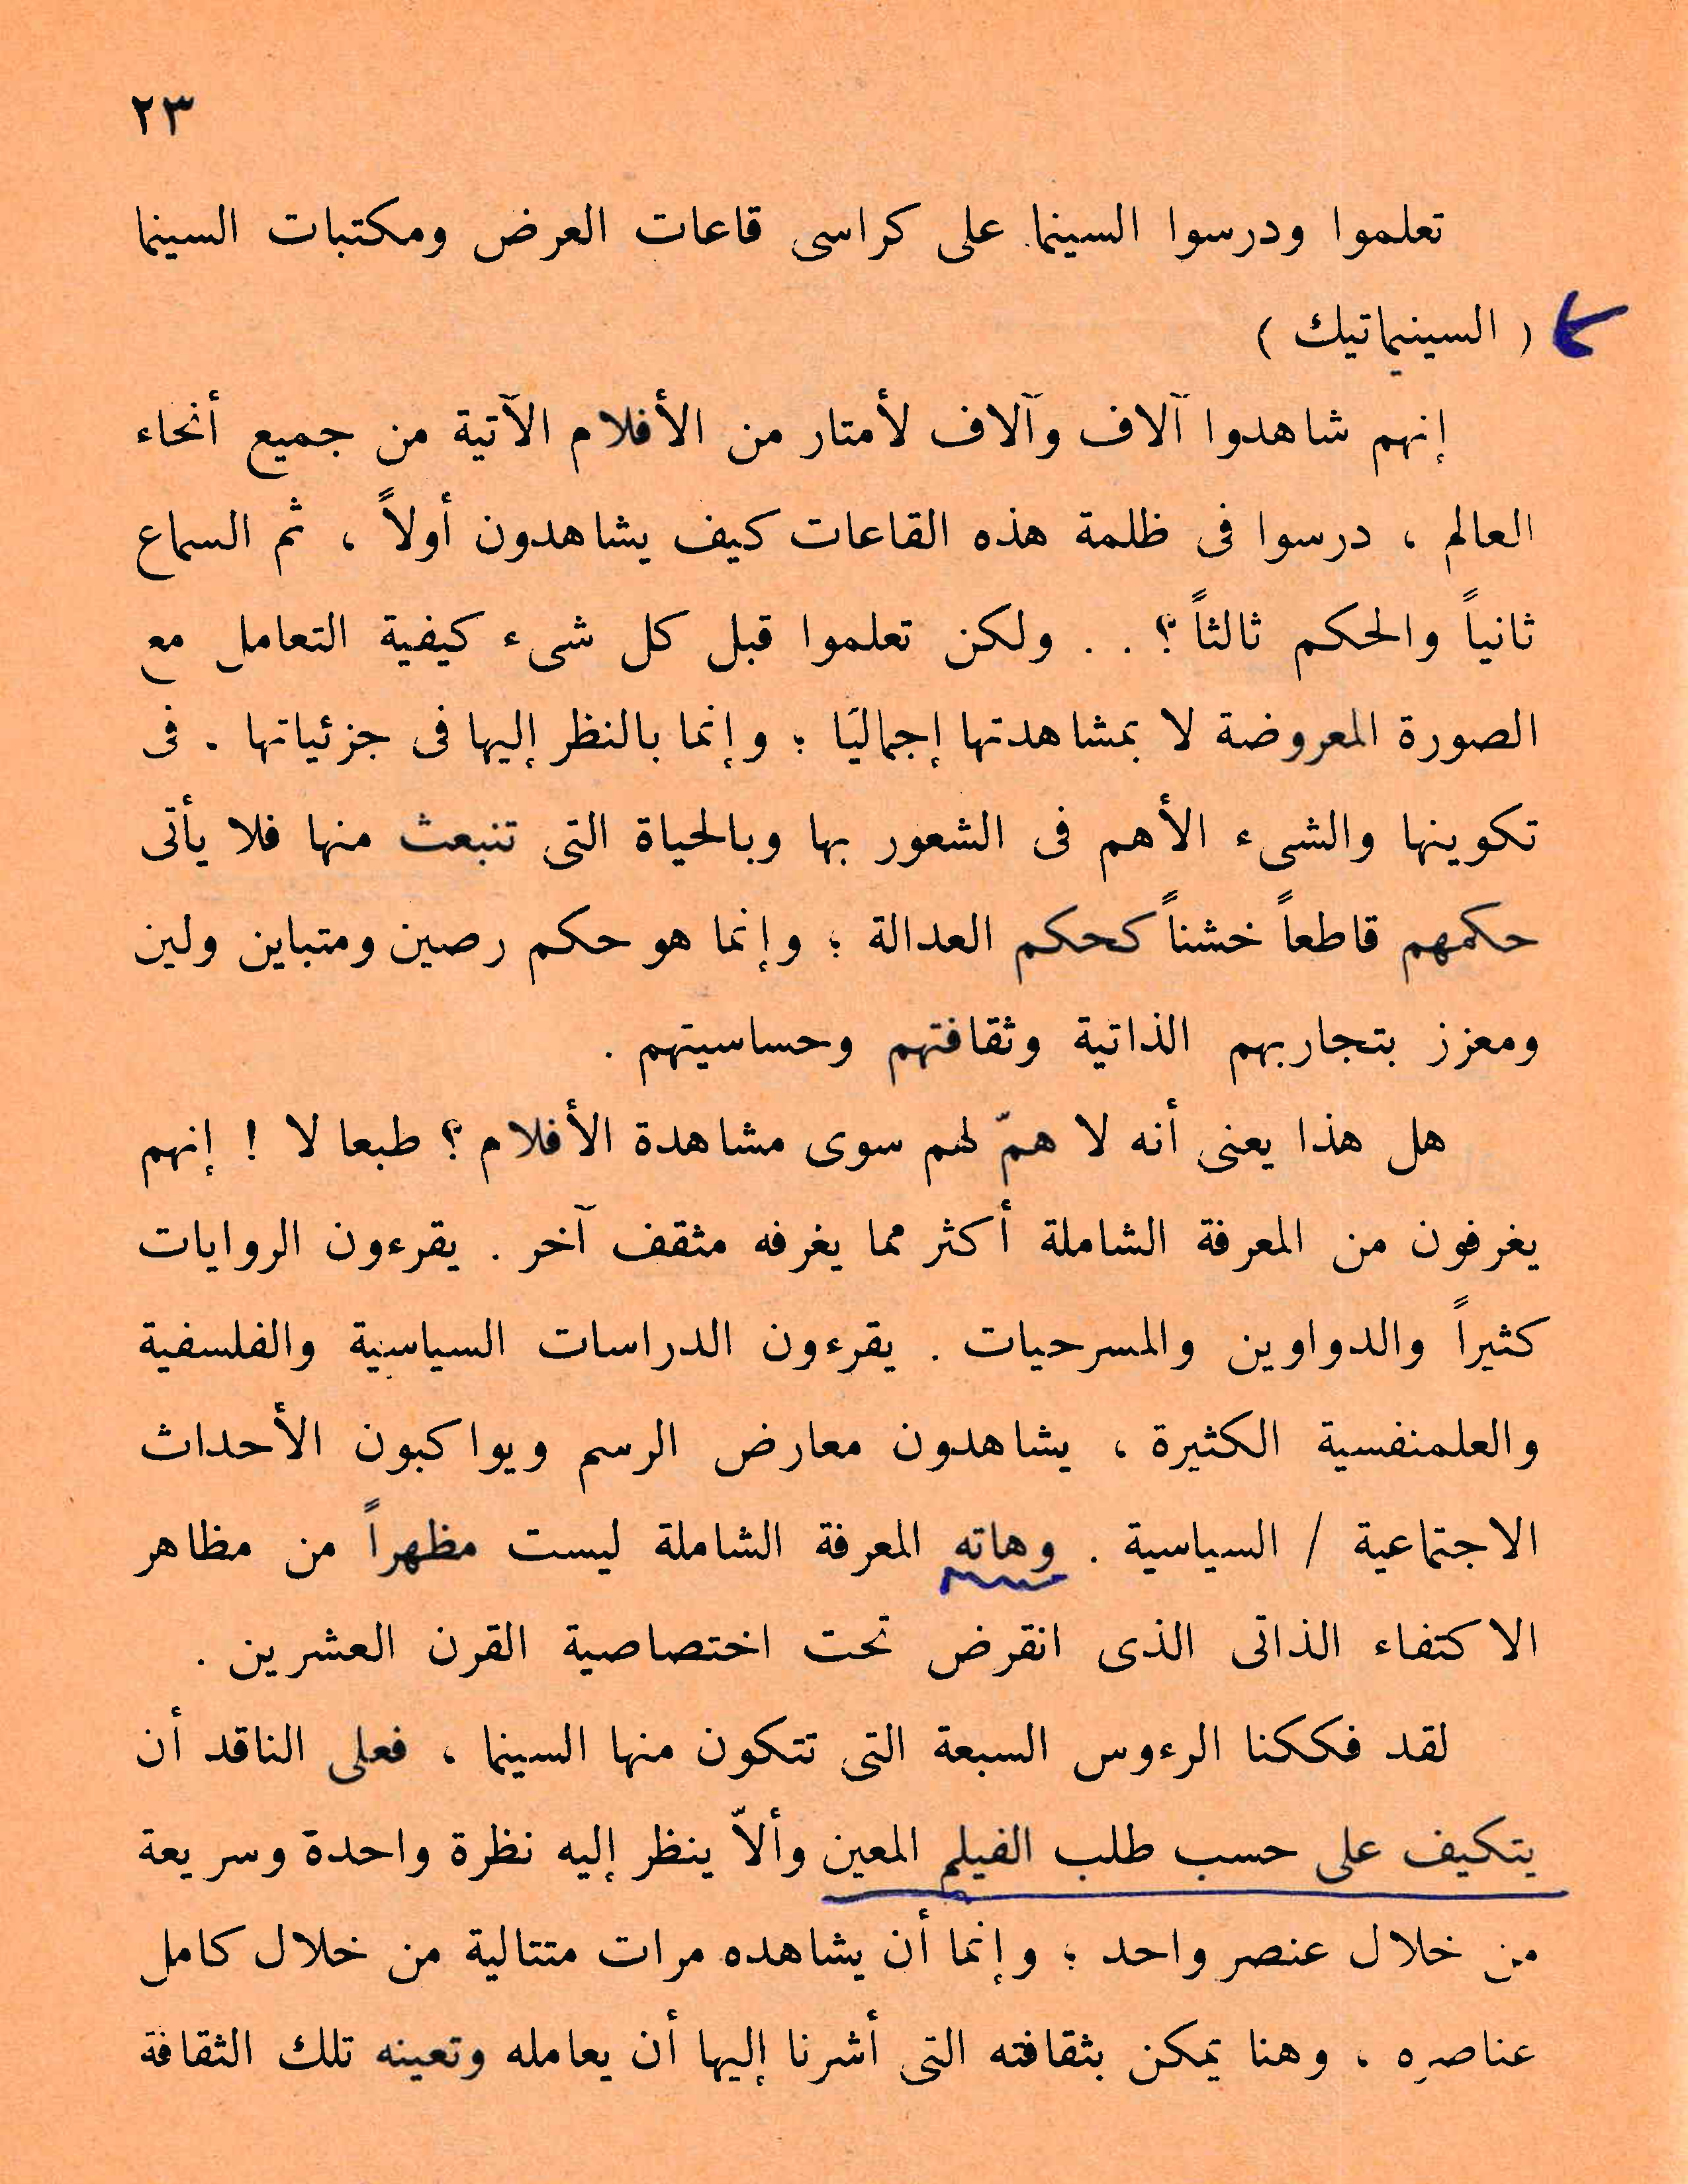 ٢٣
تعلموا ودرسوا السينما على كراسى قاعات العرض ومكتبات السينما
( السينيماتيك )
إنهم شاهدوا آلاف وآلاف لأمتار من الأفلام الآتية من جميع أنحاء
العالم ، درسوا فى ظلمة هذه القاعات كيف يشاهدون أولاً ، ثم السماع
ثانياً والحكم ثالثاً ؟ . . ولكن تعلموا قبل كل شىء كيفية التعامل مع
الصورة المعروضة لا بمشاهدتها إجماليًا ؛ وإنما بالنظر إليها فى جزئياتها . فى
تكوينها والشىء الأهم فى الشعور بها وبالحياة التى تنبعث منها فلا يأتى
حكمهم قاطعاً خشناً كحكم العدالة ؛ وإنما هو حكم رصين ومتباين ولين
ومعزز بتجاربهم الذاتية وثقافتهم وحساسيتهم .
هل هذا يعنى أنه لا همّ لهم سوى مشاهدة الأفلام ؟ طبعا لا ! إنهم
يغرفون من المعرفة الشاملة أكثر مما يغرفه مثقف آخر . يقرءون الروايات
كثيراً والدواوين والمسرحيات . يقرءون الدراسات السياسية والفلسفية
والعلمنفسية الكثيرة ، يشاهدون معارض الرسم ويواكبون الأحداث
الاجتماعية / السياسية . وهاته المعرفة الشاملة ليست مظهراً من مظاهر
الاكتفاء الذاتى الذى انقرض تحت اختصاصية القرن العشرين .
لقد فككنا الرءوس السبعة التى تتكون منها السينما ، فعلى الناقد أن
يتكيف على حسب طلب الفيلم المعين وألاّ ينظر إليه نظرة واحدة وسريعة
من خلال عنصر واحد ؛ وإنما أن يشاهده مرات متتالية من خلال كامل
عناصره ، وهنا يمكن بثقافته التى أشرنا إليها أن يعامله وتعينه تلك الثقافة